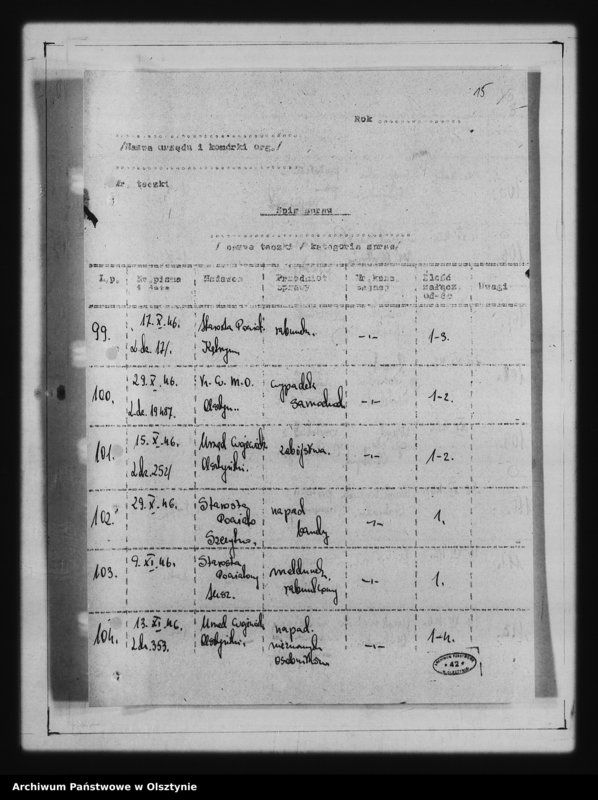 15
Rok
/Nazwa urzędu i komórki org./
Nr. teczki
Spis spraw
/ nazwa teczki / kategoria spraw/
L.p. Nr. pisma i data Nadawca Przedmiot sprawy Nr. Ilość załącz. Uwagi
99. 17. X. 46. L.dz. 17/. Starosta Powiat. rabunk. -"- 1-3.
100. 29. X. 46. L.dz. 19487. K. W. M.O. Olsztyn.. wypadek samochod. -"- 1-2.
101. 15. X. 46. L.dz. 252/ Urząd Wojewódz. Olsztyński. zabójstwa. -"- 1-2.
102. 29. X. 46. Starosta Powiato Szczytno. napad bandy -"- 1.
103. 9. XI. 46. Starosta Powiatowy Susz. meldunek rabunkowy -"- 1.
104. 13. XI. 46. L.dz. 353. Urząd Wojewódz. Olsztyński. napad. nieznanych osobników -"- 1-4.
ARCHIWUM PAŃSTWOWE
* 42 *
W OLSZTYNIE
Archiwum Państwowe w Olsztynie